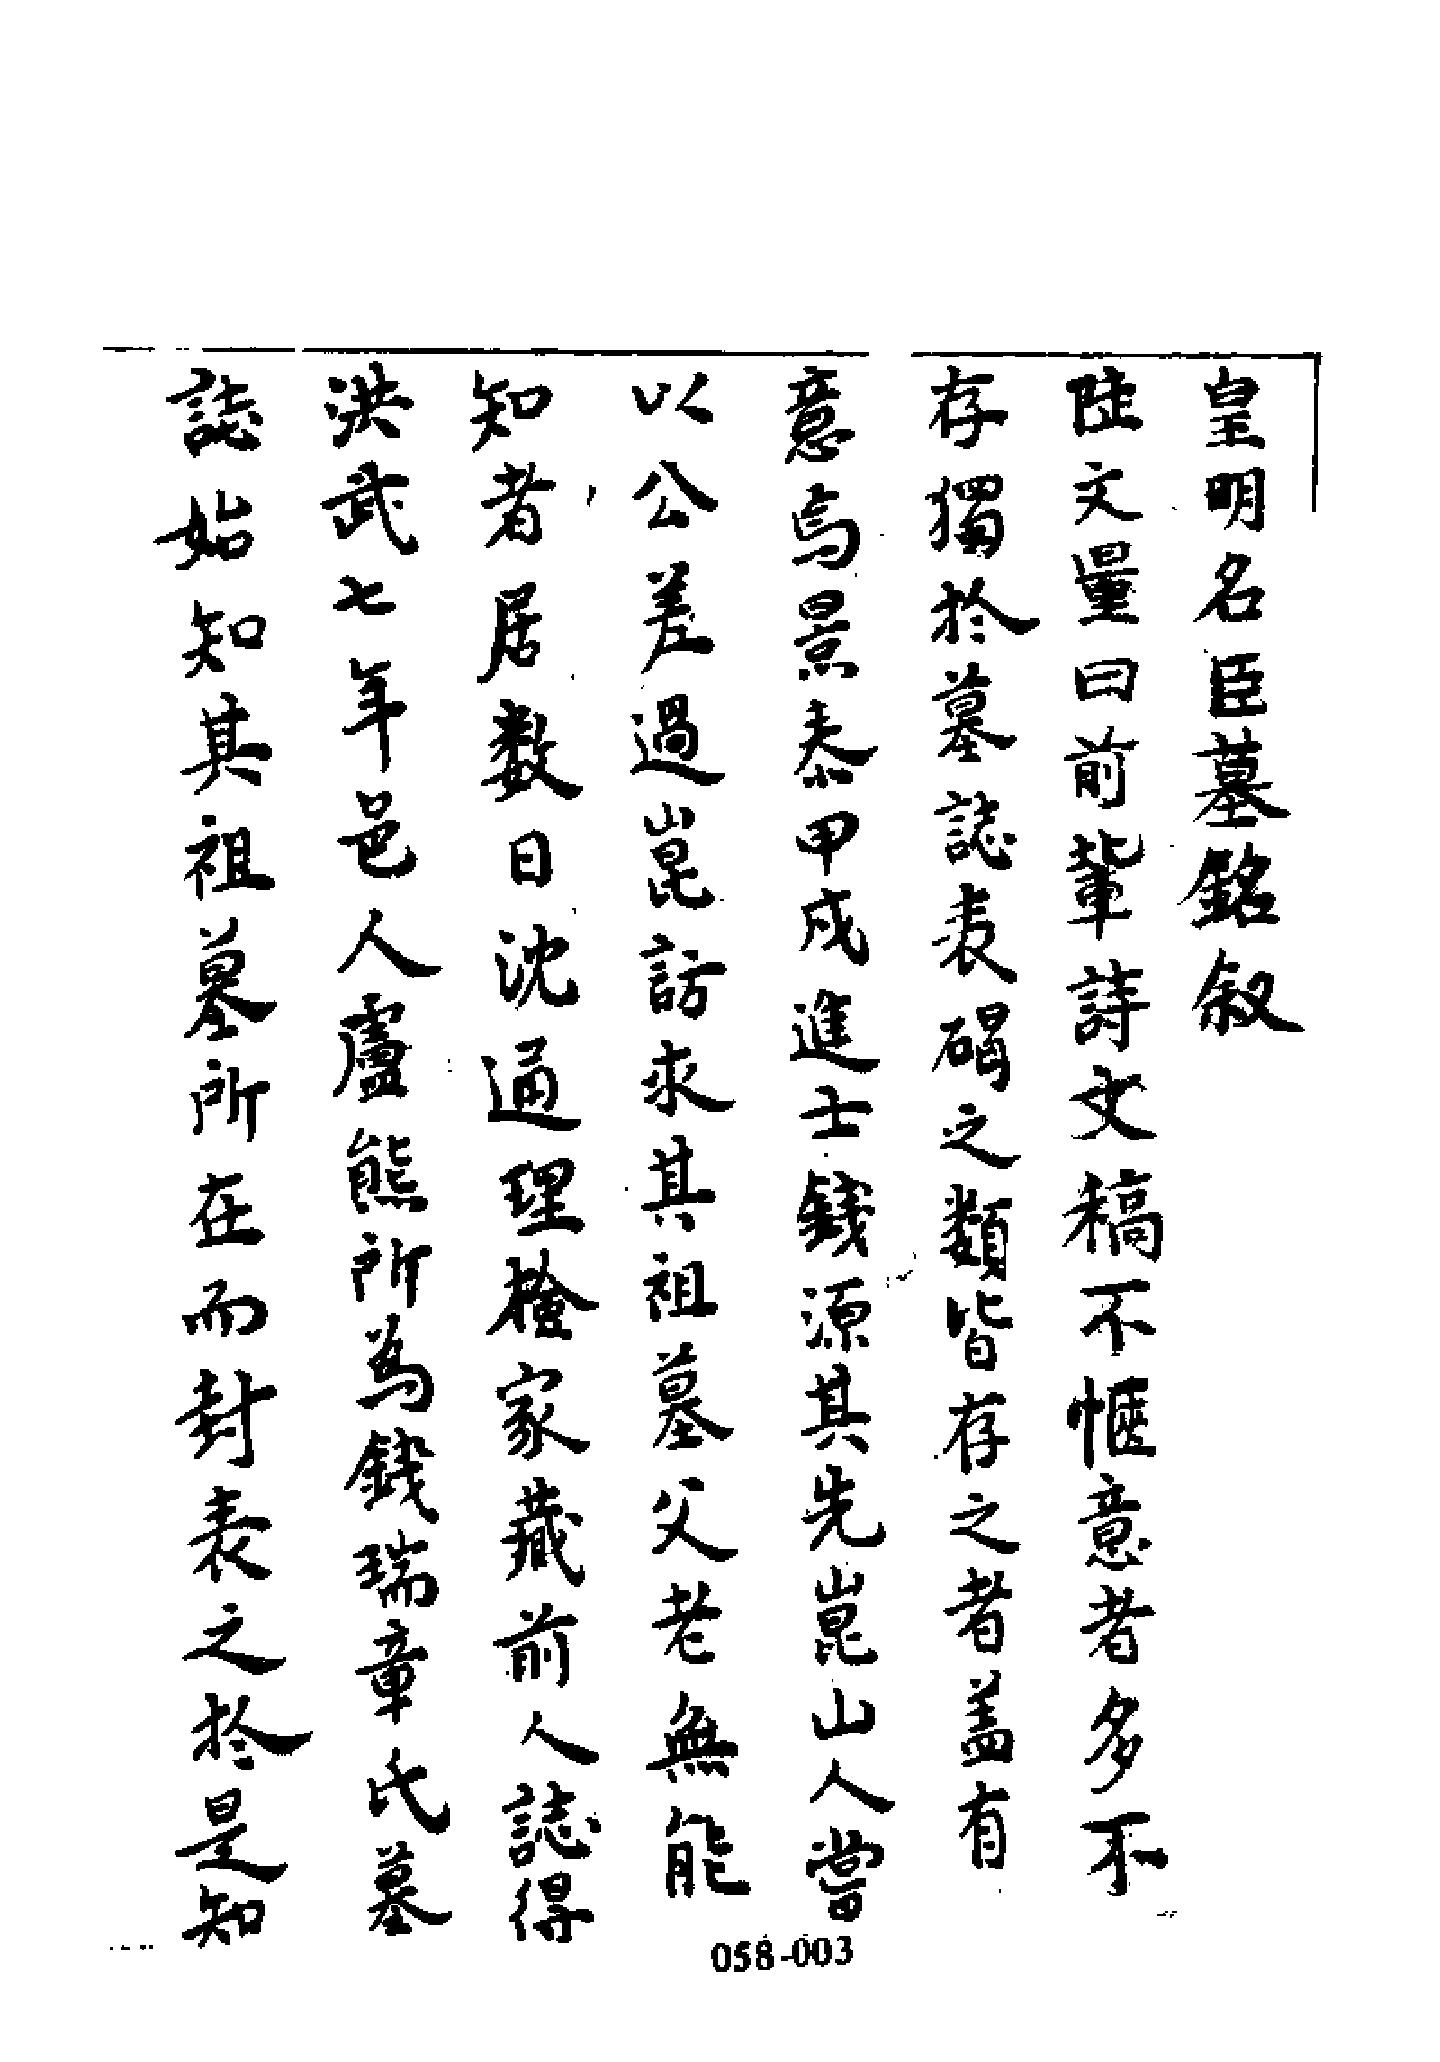 皇明名臣墓銘叙
陸文量曰前輩詩文稿不愜意者多不
存獨於墓誌表碣之類皆存之者盖有
意焉景泰甲戌進士錢源其先崑山人嘗
以公差過崑訪求其祖墓父老無能
知者居数日沈通理檢家藏前人誌得
洪武七年邑人盧熊所為錢瑞章氏墓
誌始知其祖墓所在而封表之於是知
058-003